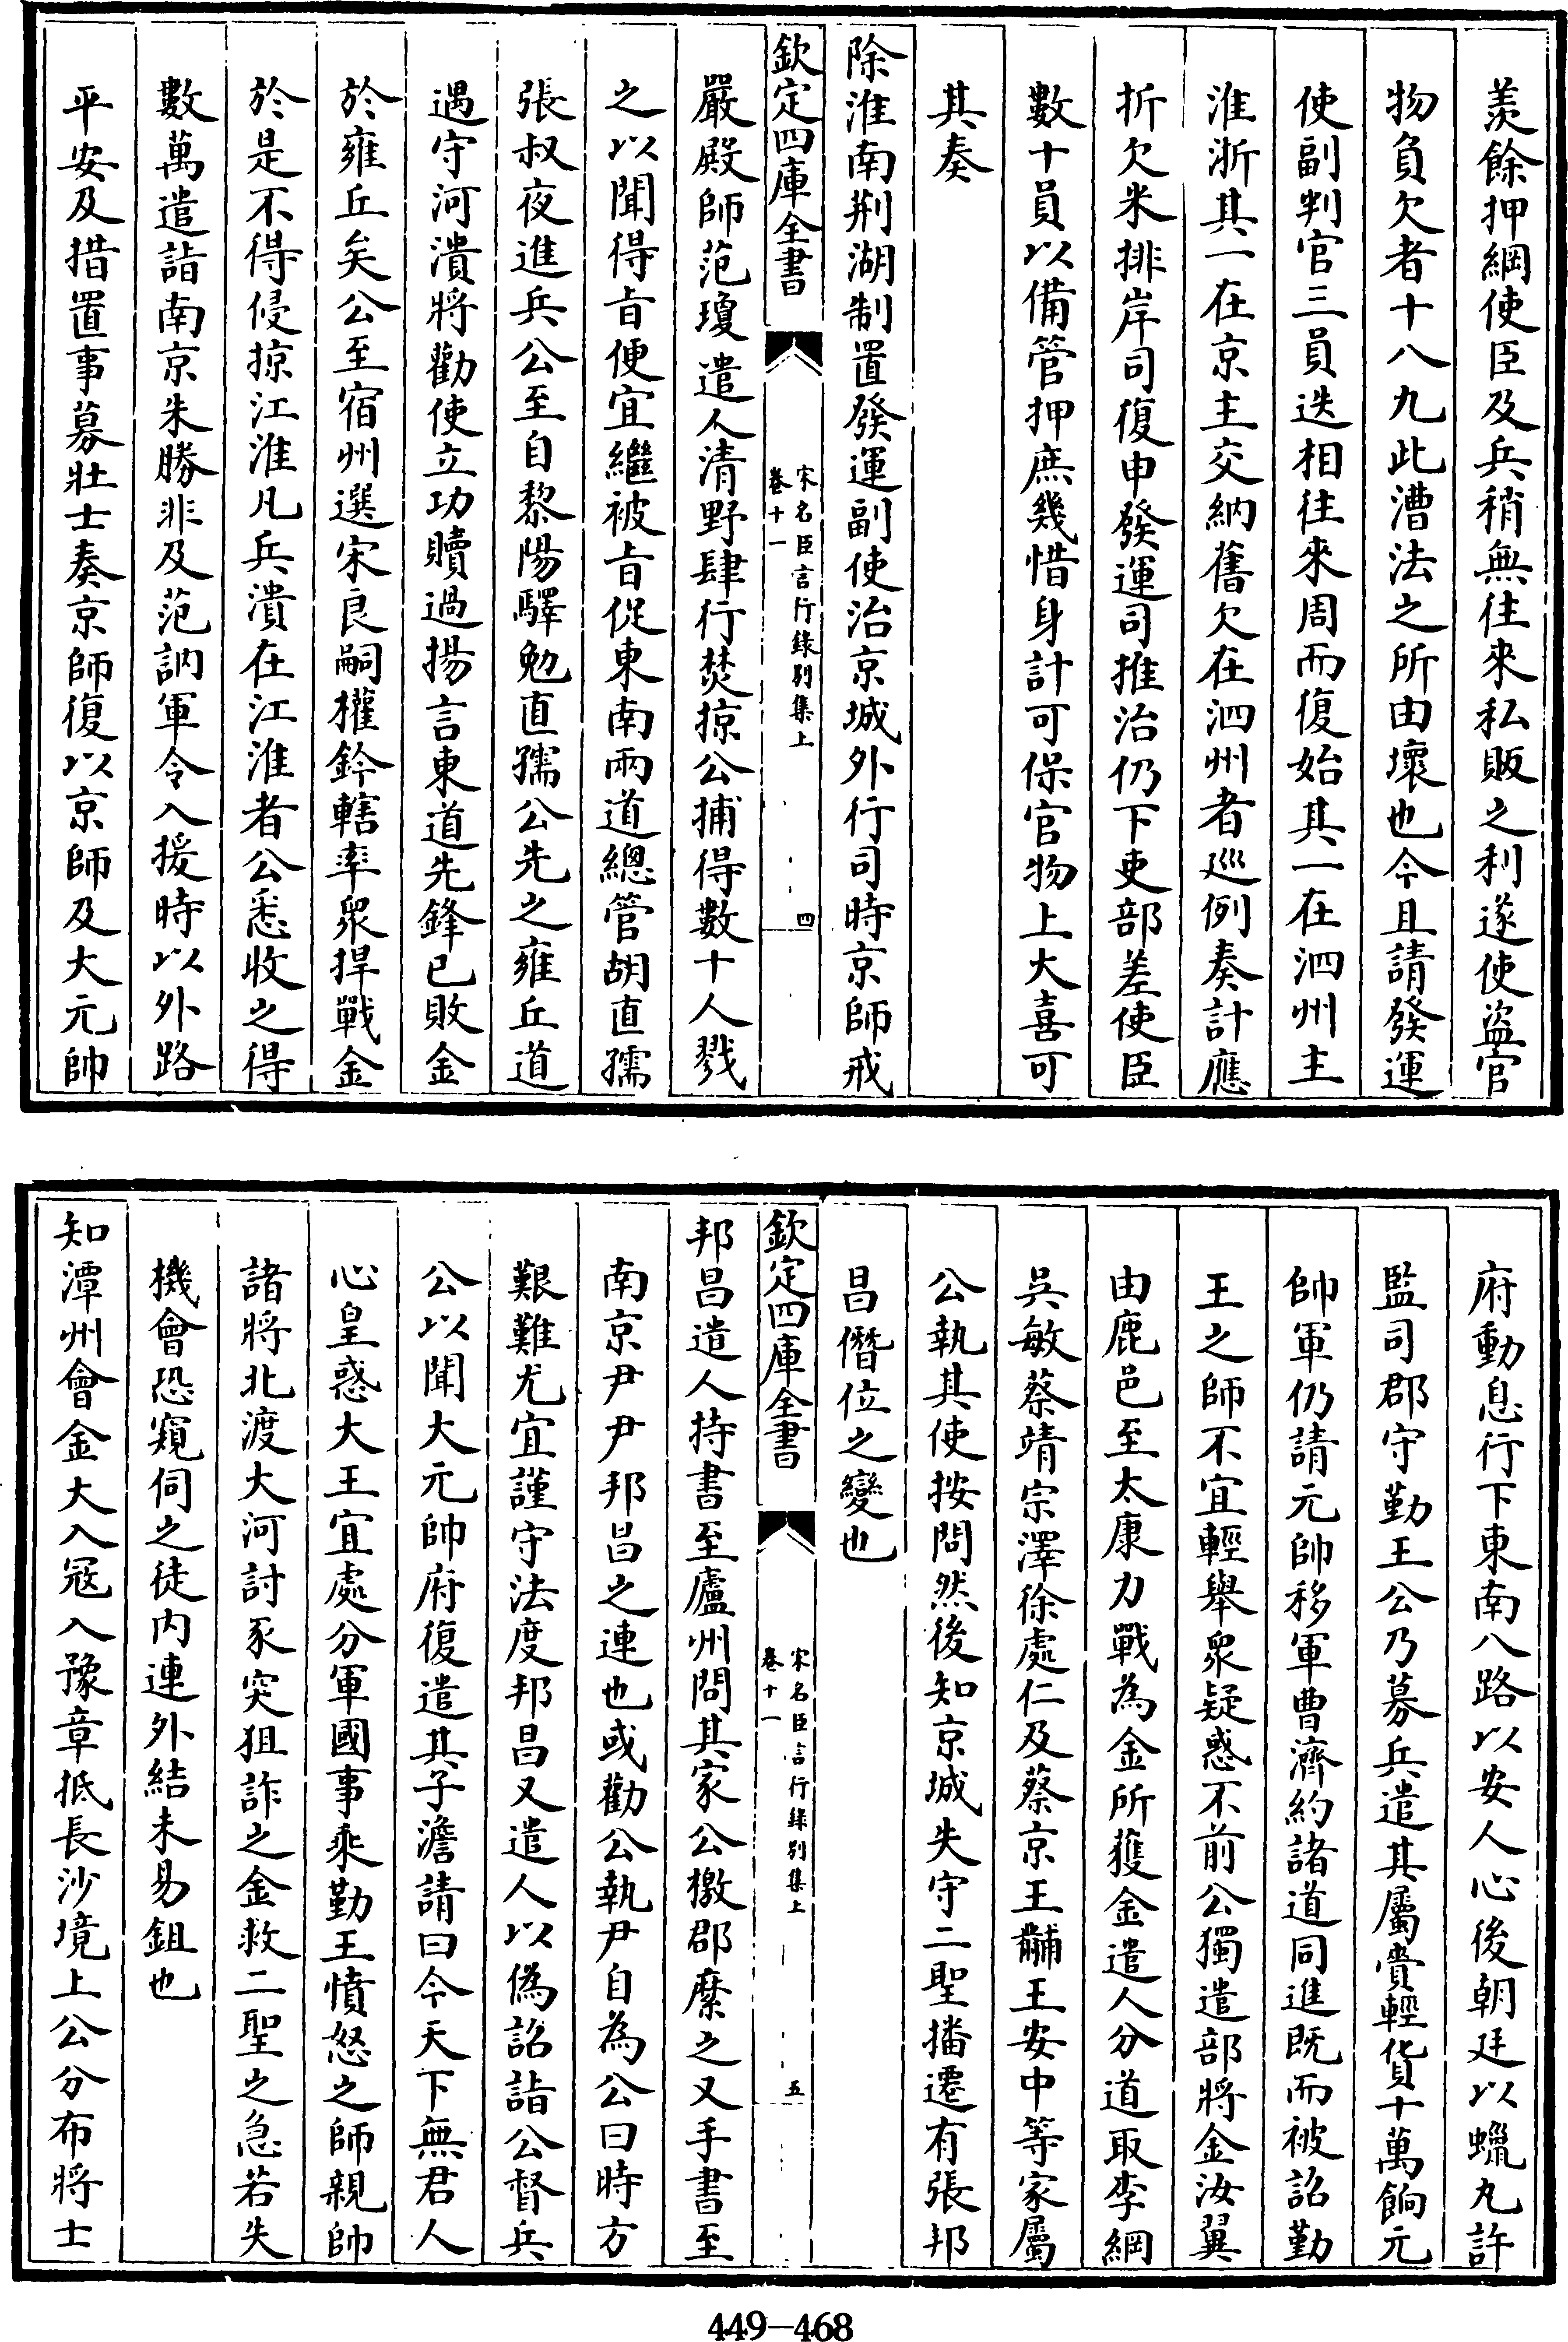 羨餘押綱使臣及兵稍無往來私販之利遂使盜官
物負欠者十八九此漕法之所由壞也今且請發運
使副判官三員迭相往來周而復始其一在泗州主
淮浙其一在京主交納舊欠在泗州者巡例奏計應
折欠米排岸司復申發運司推治仍下吏部差使臣
數十員以備管押庶幾惜身計可保官物上大喜可
其奏
除淮南荆湖制置發運副使治京城外行司時京師戒
欽定四庫全書
宋名臣言行錄别集上
卷十一
四
嚴殿師范瓊遣人清野肆行焚掠公捕得數十人戮
之以聞得旨便宜繼被旨促東南兩道總管胡直孺
張叔夜進兵公至自黎陽驛勉直孺公先之雍丘道
遇守河潰將勸使立功贖過揚言東道先鋒已敗金
於雍丘矣公至宿州選宋良嗣權鈐轄率衆捍戰金
於是不得侵掠江淮凡兵潰在江淮者公悉收之得
數萬遣詣南京朱勝非及范訥軍令入援時以外路
平安及措置事募壯士奏京師復以京師及大元帥
府動息行下東南八路以安人心後朝廷以蠟丸許
監司郡守勤王公乃募兵遣其屬賫輕貨十萬餉元
帥軍仍請元帥移軍曹濟約諸道同進既而被詔勤
王之師不宜輕舉衆疑惑不前公獨遣部將金汝翼
由鹿邑至太康力戰為金所獲金遣人分道取李綱
吳敏蔡靖宗澤徐處仁及蔡京王黼王安中等家屬
公執其使按問然後知京城失守二聖播遷有張邦
昌僭位之變也
欽定四庫全書
宋名臣言行錄别集上
卷十一
五
邦昌遣人持書至廬州問其家公檄郡縻之又手書至
南京尹尹邦昌之連也或勸公執尹自為公曰時方
艱難尤宜謹守法度邦昌又遣人以偽詔詣公督兵
公以聞大元帥府復遣其子澹請曰今天下無君人
心皇惑大王宜處分軍國事乘勤王憤怒之師親帥
諸將北渡大河討豕突狙詐之金救二聖之急若失
機會恐窺伺之徒内連外結未易鉏也
知潭州會金大入冦入豫章抵長沙境上公分布將士
449—468